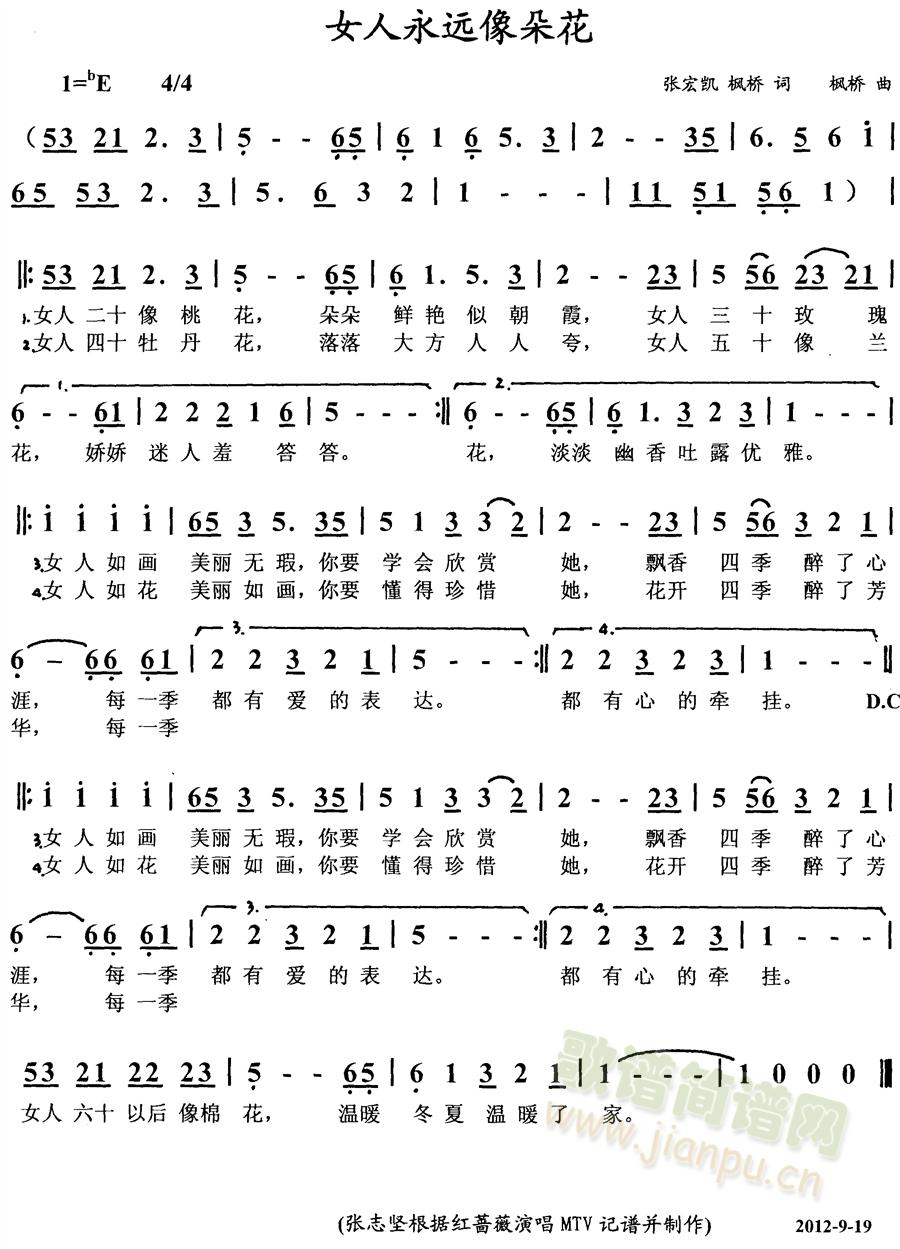 女人永远像朵花
1=bE 4/4 张宏凯 枫桥 词 枫桥 曲
（53 21 2. 3 | 5 - - 65 | 6 1 6 5. 3 | 2 - - 35 | 6. 5 6 i |
65 53 2. 3 | 5. 6 3 2 | 1 - - - | 11 51 56 1）|
‖: 53 21 2. 3 | 5 - - 65 | 6 1. 5. 3 | 2 - - 23 | 5 56 23 21 |
1.女人 二十 像 桃 花， 朵朵 鲜 艳 似 朝 霞， 女人 三 十 玫 瑰
2.女人 四十 牡 丹 花， 落落 大 方 人 人 夸， 女人 五 十 像 兰
1. 2.
6 - - 61 | 2 2 2 1 6 | 5 - - - :‖ 6 - - 65 | 6 1. 3 2 3 | 1 - - - |
花， 娇娇 迷 人 羞 答 答。 花， 淡淡 幽 香 吐 露 优 雅。
‖: i i i i | 65 3 5. 35 | 5 1 3 3 2 | 2 - - 23 | 5 56 3 2 1 |
3.女 人 如 画 美丽 无 瑕，你要 学 会 欣 赏 她， 飘香 四 季 醉 了 心
4.女 人 如 花 美丽 如 画，你要 懂 得 珍 惜 她， 花开 四 季 醉 了 芳
3. 4.
6 - 66 61 | 2 2 3 2 1 | 5 - - - :‖ 2 2 3 2 3 | 1 - - - ‖
涯， 每 一季 都 有 爱 的 表 达。 都 有 心 的 牵 挂。 D.C
华， 每 一季
‖: i i i i | 65 3 5. 35 | 5 1 3 3 2 | 2 - - 23 | 5 56 3 2 1 |
3.女 人 如 画 美丽 无 瑕，你要 学 会 欣 赏 她， 飘香 四 季 醉 了 心
4.女 人 如 花 美丽 如 画，你要 懂 得 珍 惜 她， 花开 四 季 醉 了 芳
3. 4.
6 - 66 61 | 2 2 3 2 1 | 5 - - - :‖ 2 2 3 2 3 | 1 - - - |
涯， 每 一季 都 有 爱 的 表 达。 都 有 心 的 牵 挂。
华， 每 一季
53 21 22 23 | 5 - - 65 | 6 1 3 2 1 | 1 - - - | 1 0 0 0 ‖
女人 六十 以后 像棉 花， 温暖 冬 夏 温 暖 了 家。
歌谱简谱网
www.jianpu.cn
(张志坚根据红蔷薇演唱 MTV 记谱并制作) 2012-9-19